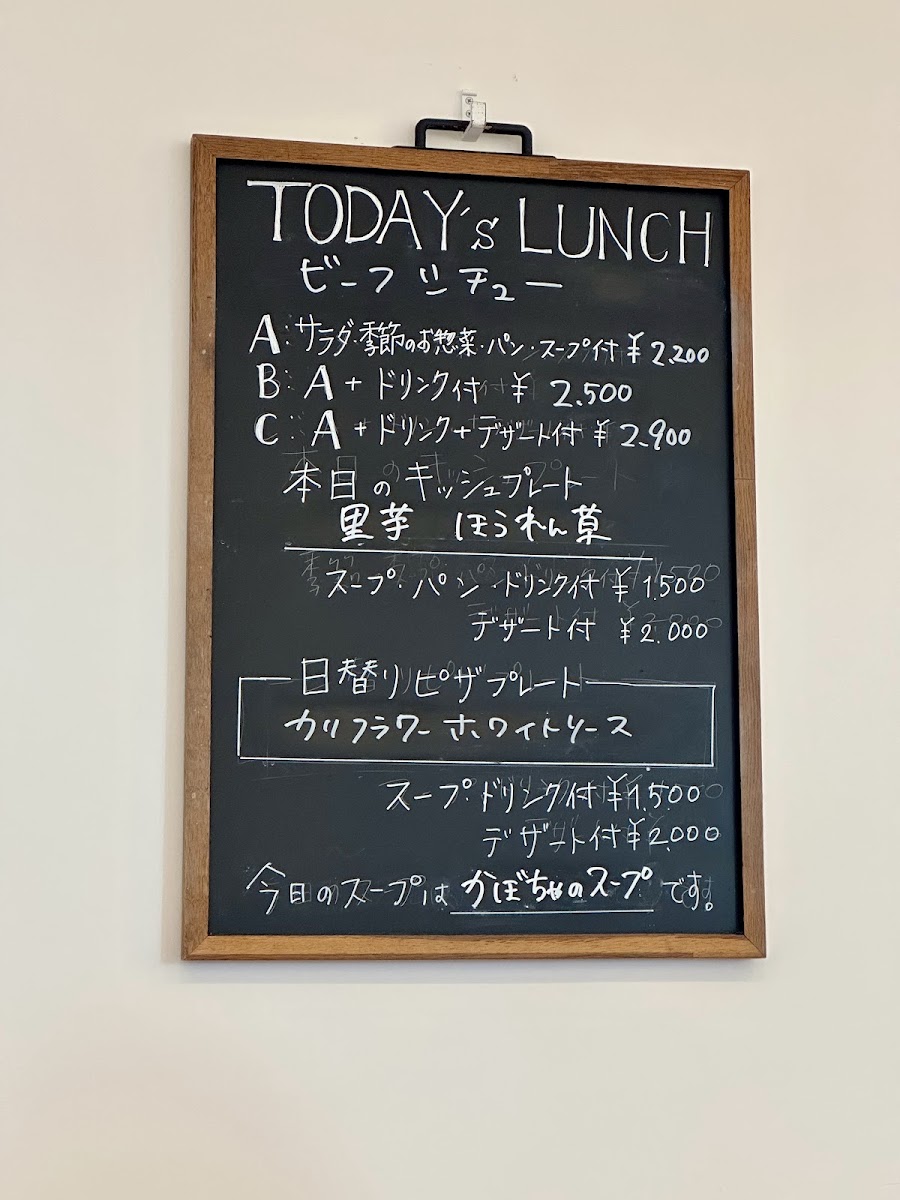 TODAY's LUNCH
ビーフシチュー
A:サラダ・季節のお惣菜・パン・スープ付 ¥2.200
B:A+ドリンク付 ¥2.500
C:A+ドリンク+デザート付 ¥2.900
本日のキッシュプレート
里芋 ほうれん草
スープ・パン・ドリンク付 ¥1.500
デザート付 ¥2.000
日替りピザプレート
カリフラワーホワイトソース
スープ・ドリンク付¥1.500
デザート付¥2.000
今日のスープは かぼちゃのスープ です。